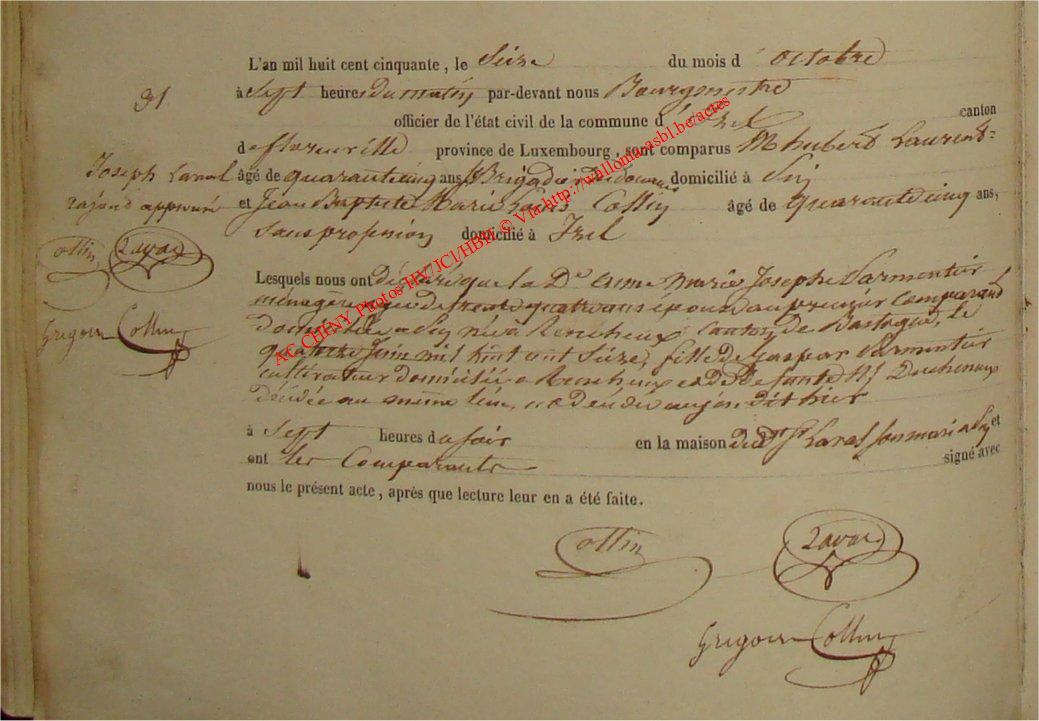 L'an mil huit cent cinquante, le Seize du mois d' octobre
31
à Sept heures du matin par-devant nous Bourgmestre
officier de l'état civil de la commune d' Izel canton
de florenville province de Luxembourg, sont comparus M hubert Laurent=
Joseph Laval âgé de quarante cinq ans Brigadier de douanes domicilié à
rajouté approuvé et Jean Baptiste Marie Collin âgé de quarante cinq ans,
Sans profession domicilié à Izel
ollin Laval
Gregoire Collin
Lesquels nous ont déclaré que la De. anne marie Josephe Parmentier
ménagère agée de trente quatre ans épouse au premier Comparand
domiciliée a née a Rencheux Canton de Bastogne, le
quatorze Juin mil huit cent Seize, fille de Gaspar Parmentier
cultivateur domicilié a Rencheux et de Defunte Duchenaux
décédée au même lieu, est décédée au jour dit hier
à Sept heures du soir en la maison dudt. Sr. Laval son mari a et
ont les Comparants signé avec
nous le présent acte, après que lecture leur en a été faite.
Collin Laval
Gregoire Collin
AC CHINY Photos HV/JC1/HBH © Via http://wallonia.asbl.be/actes